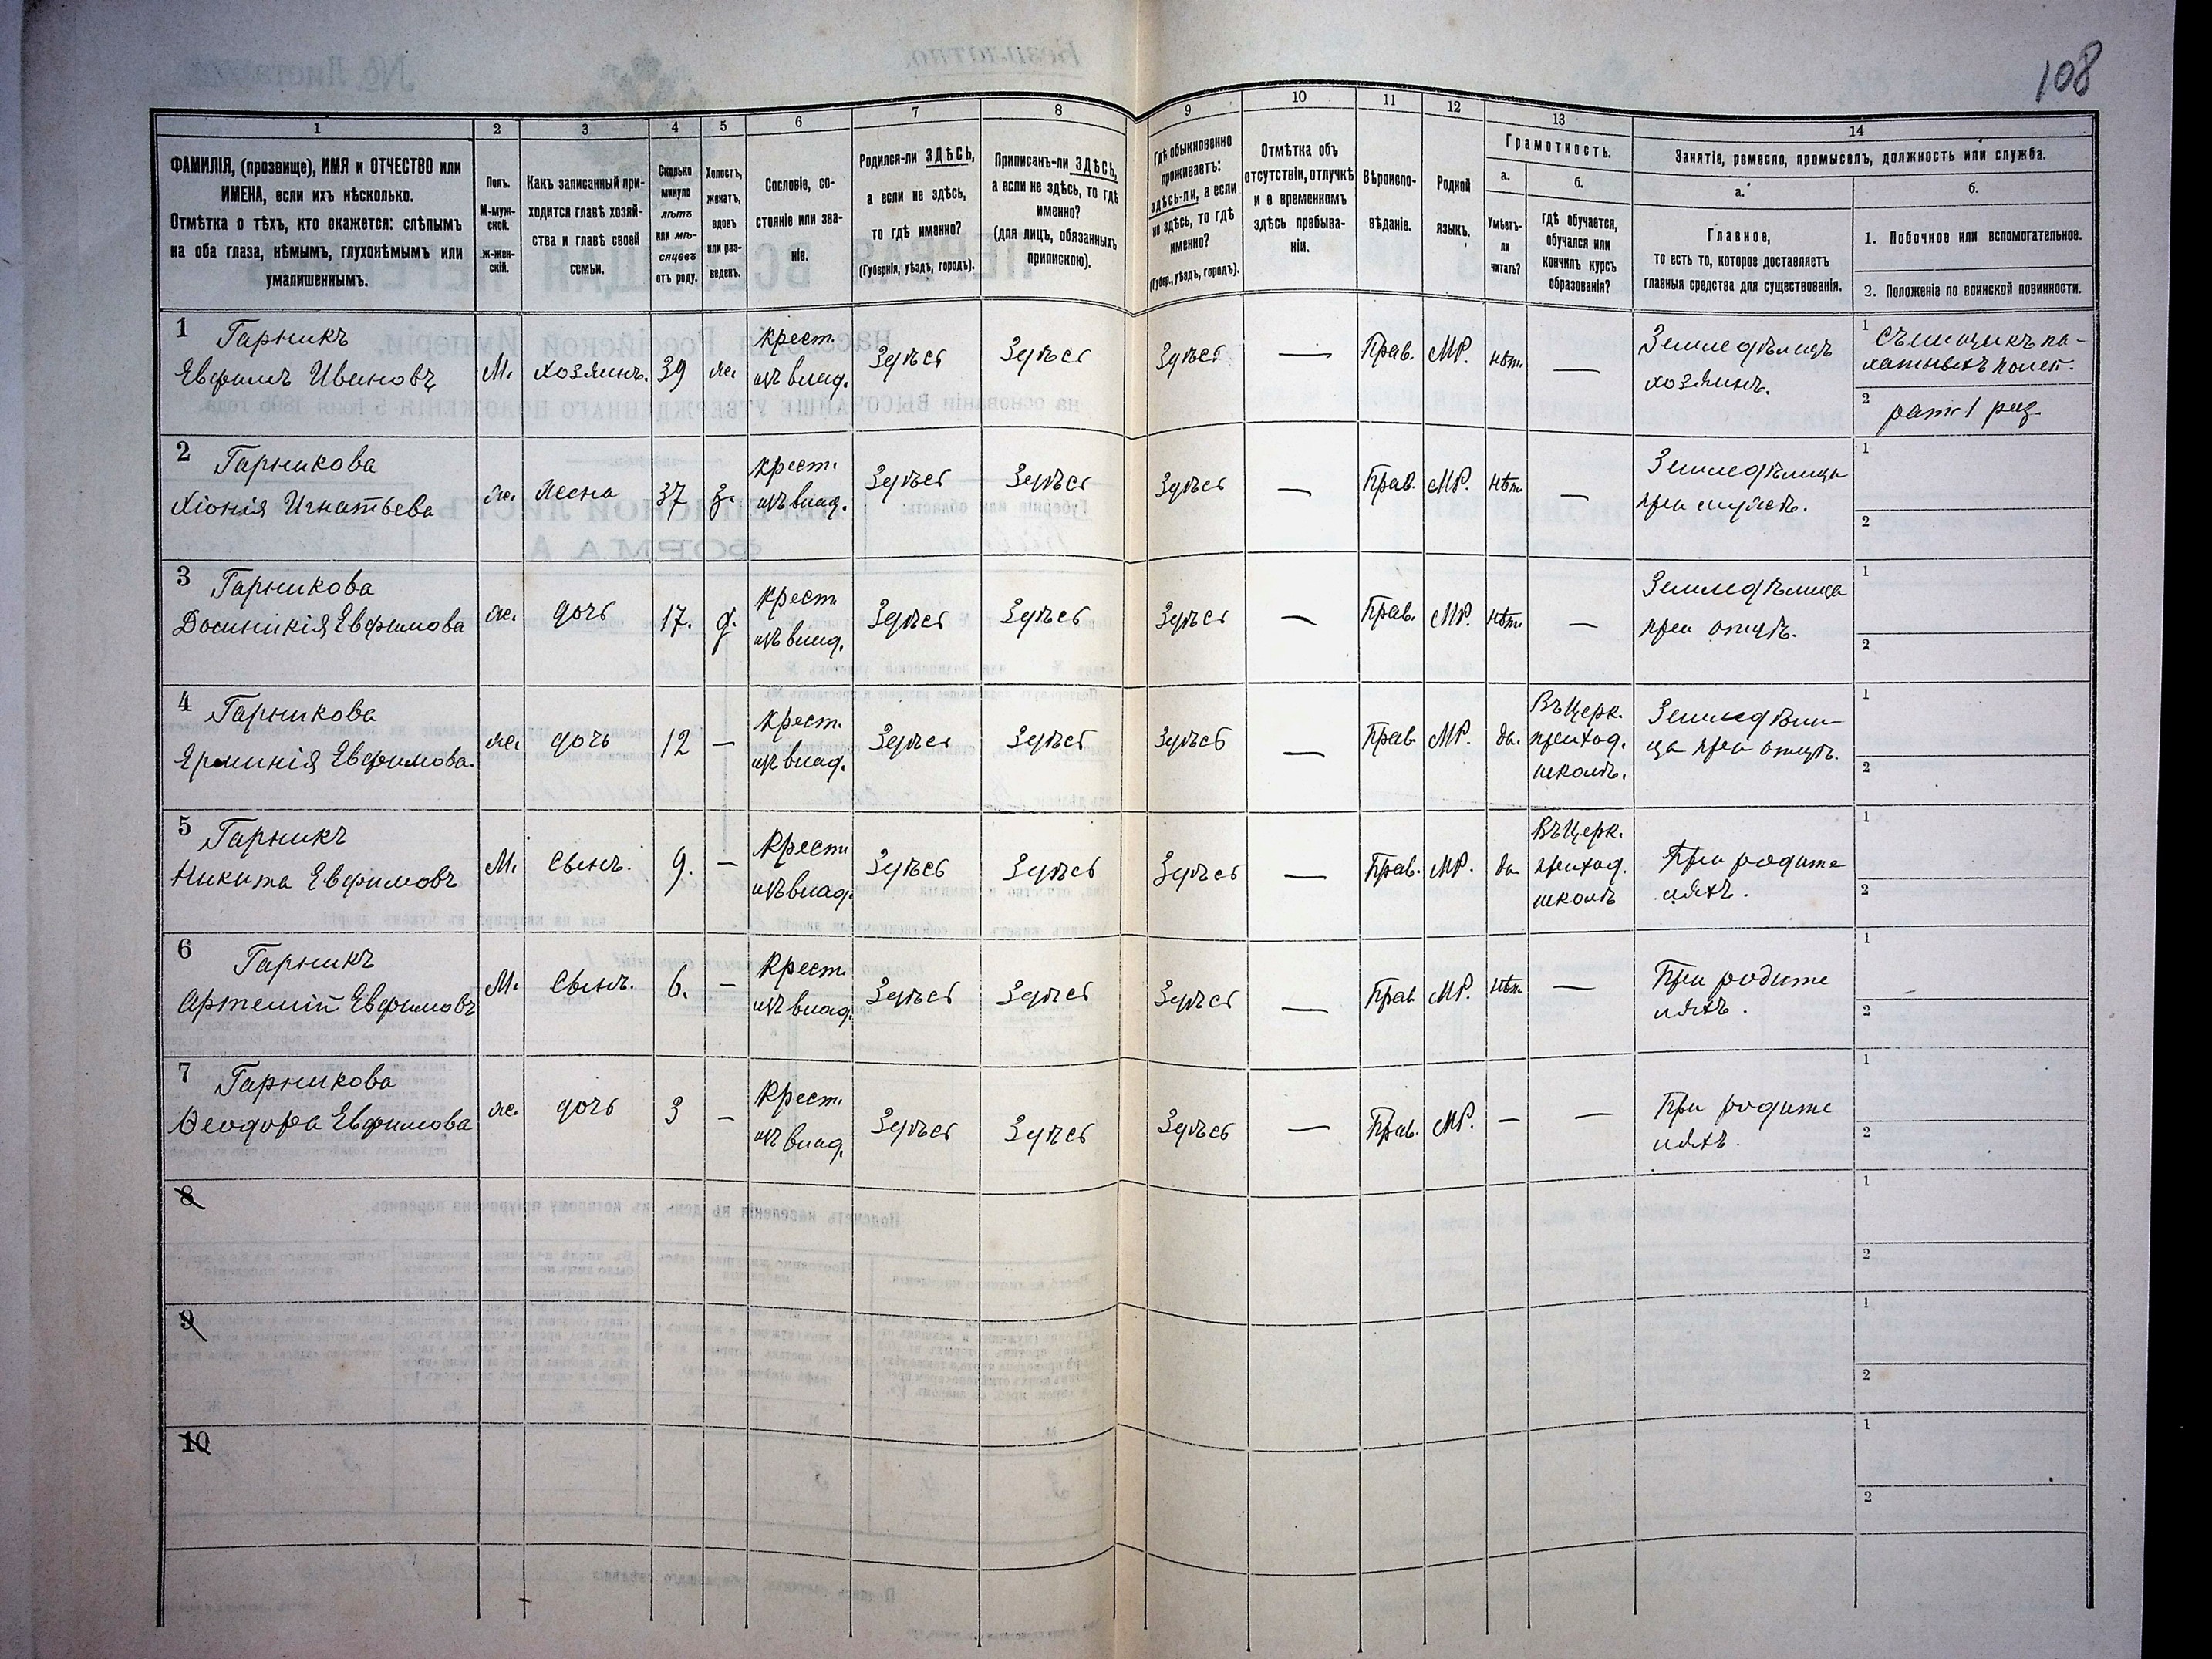 108
1
2
3
4
5
6
7
8
9
10
11
12
13
14
ФАМИЛІЯ, (прозвище), ИМЯ и ОТЧЕСТВО или
ИМЕНА, если ихъ нѣсколько.
Отмѣтка о тѣхъ, кто окажется: слѣпымъ
на оба глаза, нѣмымъ, глухонѣмымъ или
умалишеннымъ.
Полъ.
М-муж-
ской.
ж-жен-
скій.
Какъ записанный при-
ходится главѣ хозяй-
ства и главѣ своей
семьи.
Сколько
минуло
лѣтъ
или мѣ-
сяцевъ
отъ роду.
Холостъ,
женатъ,
вдовъ
или раз-
веденъ.
Сословіе, со-
стояніе или зва-
ніе.
Родился-ли ЗДѢСЬ,
а если не здѣсь,
то гдѣ именно?
(Губернія, уѣздъ, городъ).
Приписанъ-ли ЗДѢСЬ,
а если не здѣсь, то гдѣ
именно?
(для лицъ, обязанныхъ
припискою).
Гдѣ обыкновенно
проживаетъ:
здѣсь-ли, а если
не здѣсь, то гдѣ
именно?
(Губер., уѣздъ, городъ).
Отмѣтка объ
отсутствіи, отлучкѣ
и о временномъ
здѣсь пребыва-
ніи.
Вѣроиспо-
вѣданіе.
Родной
языкъ.
Грамотность.
а.
б.
Умѣетъ-
ли
читать?
гдѣ обучается,
обучался или
кончилъ курсъ
образованія?
Занятіе, ремесло, промыселъ, должность или служба.
а.
б.
Главное,
то есть то, которое доставляетъ
главныя средства для существованія.
1. Побочное или вспомогательное.
2. Положеніе по воинской повинности.
1 Гарникъ
Евфимъ Ивановъ
М.
хозяинъ.
39
ж.
крест.
изъ влад.
Здѣсь
Здѣсь
Здѣсь
—
Прав.
МР.
нѣт.
—
Земледѣлецъ
хозяинъ.
1 Съемщикъ па-
хатныхъ полей.
2 ратн 1 раз.
2 Гарникова
Хіонія Игнатьева
ж.
жена
37
з.
крест.
изъ влад.
Здѣсь
Здѣсь
Здѣсь
—
Прав.
МР.
нѣт.
—
Земледѣлица
при мужѣ.
1
2
3 Гарникова
Домникія Евфимова
ж.
дочь
17.
д.
крест.
изъ влад.
Здѣсь
Здѣсь
Здѣсь
—
Прав.
МР.
нѣт.
—
Земледѣлица
при отцѣ.
1
2
4 Гарникова
Ерминія Евфимова.
ж.
дочь
12
—
крест.
изъ влад.
Здѣсь
Здѣсь
Здѣсь
—
Прав
МР.
да.
Въ Церк.
приход.
школѣ.
Земледѣли-
ца при отцѣ.
1
2
5 Гарникъ
Никита Евфимовъ
М.
сынъ.
9.
—
Крест
изъ влад.
Здѣсь
Здѣсь
Здѣсь
—
Прав.
МР.
да
Въ Церк.
приход.
школѣ
При родите
ляхъ.
1
2
6 Гарникъ
Артемій Евфимовъ
М.
сынъ.
6.
—
Крест.
изъ влад.
Здѣсь
Здѣсь
Здѣсь
—
Прав
МР.
нѣт.
—
При родите
ляхъ.
1
2
7 Гарникова
Ѳеодора Евфимова
ж.
дочь
3
—
Крест.
изъ влад.
Здѣсь
Здѣсь
Здѣсь
—
Прав.
МР.
—
—
При родите
ляхъ.
1
2
8
1
2
9
1
2
10
1
2